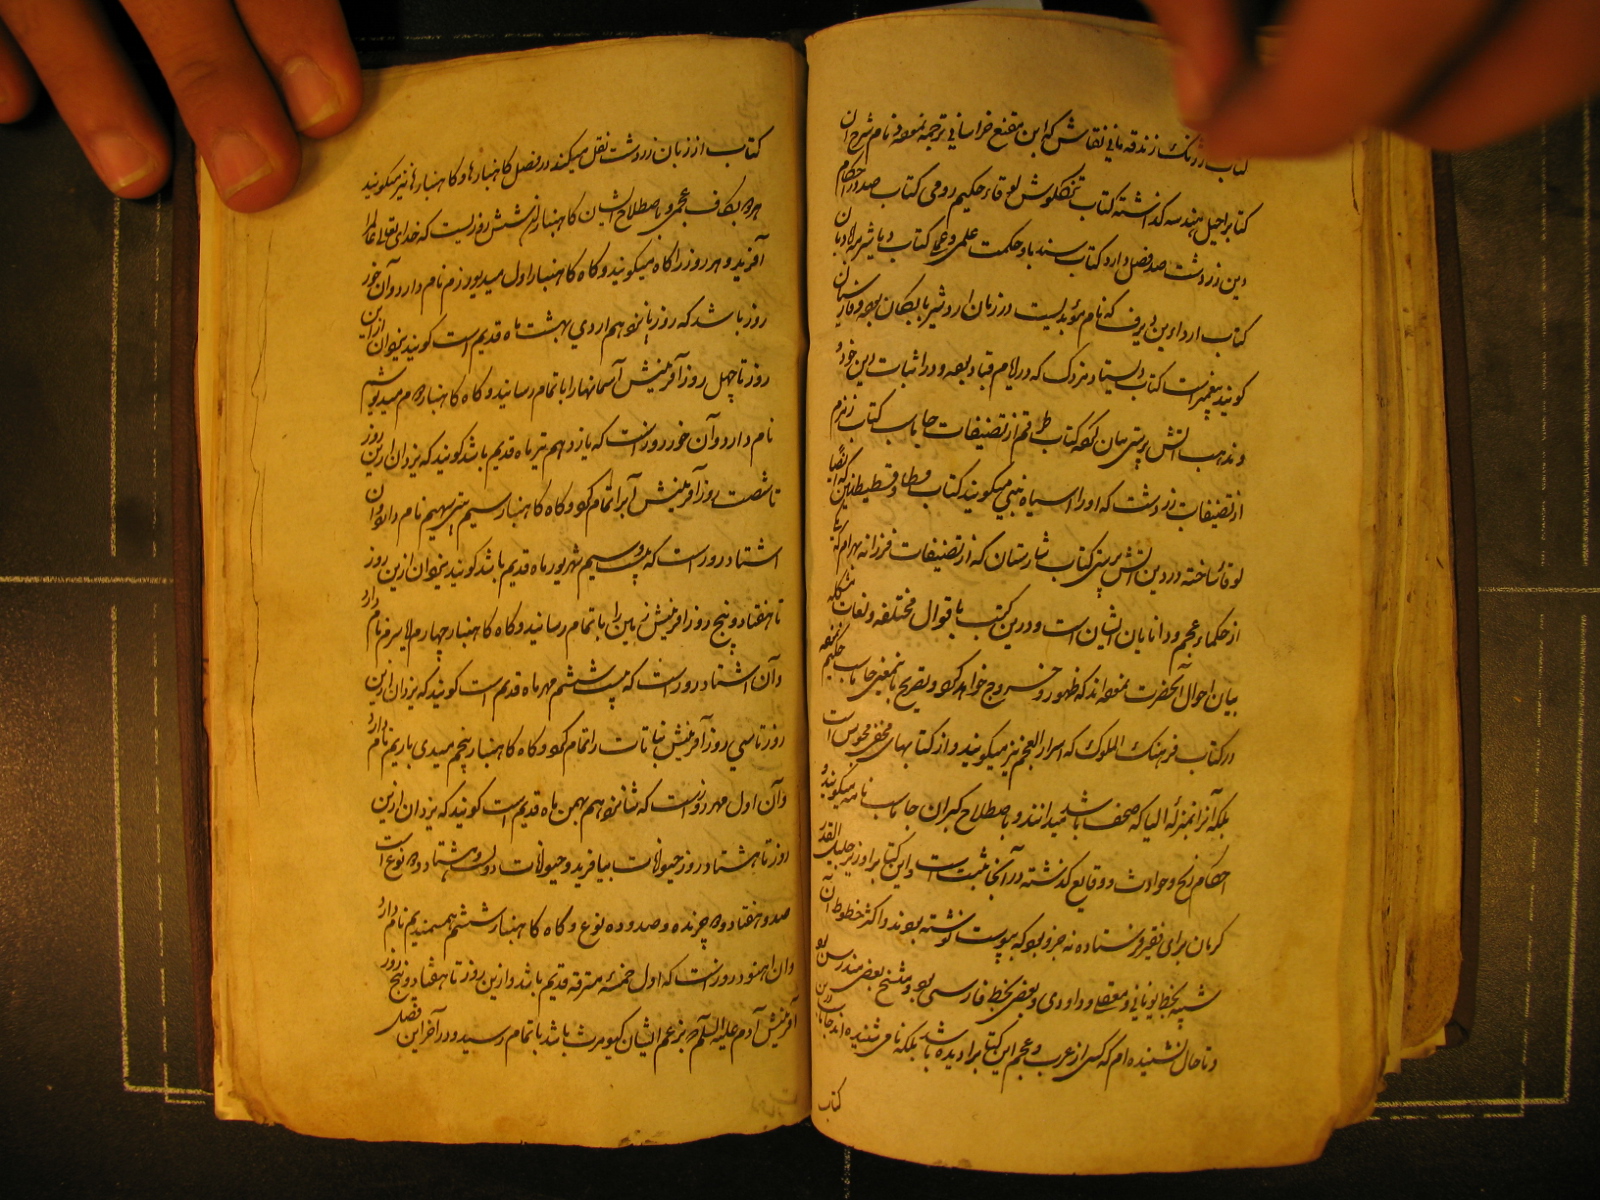 کتاب ارژنگ زندقه مانی نقاش که ابن مقنع خراسانی ترجمه نموده و نام شرح آن
کتاب را حیل هندسه گذاشته کتاب تنکلوش لوقاء حکیم رومی کتاب صد در احکام
دین زردشت صد فصل دارد کتاب سندباد حکمت علمی و عملی کتاب
کتاب ارداوین ویرف که نام موبدیست در زمان اردشیر بابکان بوده و فارسیان
گویند پیغمبر است کتاب دیستاد مزدک که در ایام قباد بوده و در اثبات دین خود و
مذهب آتش پرستی بیان کرده کتاب از تصنیفات جاماسب کتاب زمزم
از تصنیفات زردشت که او را سیاه نبی میگویند کتاب قسطا که انقضا
لوقا ساخته در دین آتش پرستی کتاب شارستان که از تصنیفات فرزانه بهرام که
از حکماء عجم و دانایان ایشان است و درین کتب باقوال مختلفه و لغات مشکله
بیان احوال آنحضرت نموده اند که ظهور و خروج خواهد کرد و تصریح باینمعنی جاماسب حکیم نموده
در کتاب فرهنگ الملوک که اسرار العجم نیز میگویند و از کتابهای مخفی مجوس است
بلکه آنرا بمنزله الیا که صحف باشد میدانند و باصطلاح گبران جاماسب نامه میگویند و
احکام زیج و حوادث و وقایع گذشته در آنجا ثبت است و این کتاب را وزیر جلیل القدر
کرمان برای فقیر فرستاده نه جزو بود که بپوست نوشته بودند و اکثر خطوط آن
شبیه بخط یونانی و معقلی و داودی و بعضی بخط فارسی بود و بعضی مندرس بود
و تا حال نشنیده ام که کسی از عرب و عجم این کتاب را دیده باشد بلکه نامی شنیده اند
کتاب
کتاب از زبان زردشت نقل میکند در فصل کاهنبارها و کاهنبارها نیز میگویند
هر دو بکاف عجمی و باصطلاح ایشان کاهنبار آن شش روزیست که خدای تعالی عالم را
آفرید و هر روز را گاه میگویند و گاه گاهنبار اول میدیوزرم نام دارد و آن خور
روز باشد که روز یازدهم اردی بهشت ماه قدیم است گویند یزدان ازین
روز تا چهل روز آفرینش آسمانها را باتمام رسانید و گاه گاهنبار دوم میدیوشم
نام دارد و آن خور روز است که یازدهم تیر ماه قدیم باشد گویند که یزدان ازین روز
تا شصت روز آفرینش آب را تمام کرد و گاه گاهنبار سیم پتی سهیم نام دارد و آن
اشتاد روز است که بیست و ششم شهریور ماه قدیم باشد گویند یزدان ازین روز
تا هفتاد و پنج روز آفرینش زمین را باتمام رسانید و گاه گاهنبار چهارم ایاسرم نام دارد
و آن اشتاد روز است که بیست و ششم مهر ماه قدیم است گویند که یزدان ازین
روز تا سی روز آفرینش نباتات را تمام کرد و گاه گاهنبار پنجم میدیاریم نام دارد
و آن اول مهر روز است که شانزدهم بهمن ماه قدیم است گویند که یزدان ازین
روز تا هشتاد روز حیوانات بیافرید و حیوانات دویست و هشتاد و دو نوع است
صد و هفتاد و دو چرنده و صد و ده نوع و گاه گاهنبار ششم همسپدیم نام دارد
و آن اهنود روز است که اول خمسه مسترقه قدیم باشد و ازین روز تا هفتاد و پنج روز
آفرینش آدم علیه السلام که بزعم ایشان کیومرث باشد باتمام رسید و در آخر این فصل